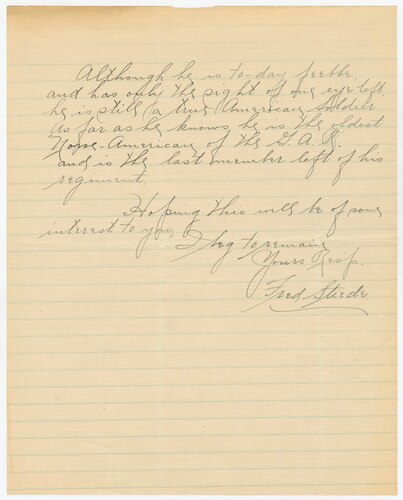 Although he is to-day feeble
and has only the sight of one eye left
he is still a true American Soldier
As far as he knows he is the oldest
Norse-American of the G.A.R.
and is the last member left of his
regiment.
Hoping this will be of some
interest to you,
I beg to remain
Yours Resp.
Fred Stiede